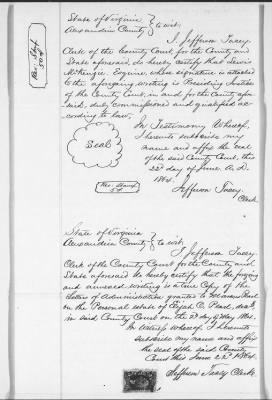 State of Virginia
Alexandria County } to wit:
I, Jefferson Tacey
Clerk of the County Court, for the County and
State aforesaid, do hereby certify that Lewis
McKenzie, Esquire, whose signature is attached
to the aforegoing writing is Presiding Justice
of the County Court, in and for the County afore-
said, duly commissioned and qualified ac-
cording to law.
In Testimony Whereof,
I hereunto subscribe my
name and affix the seal
of the said County Court, this
22d day of June A.D.
1864.
Jefferson Tacey
Clerk
Rev. Stamp
50 cts
Seal
Rev. Stamp
5 c
State of Virginia
Alexandria County } to wit:
I Jefferson Tacey
Clerk of the County Court for the County and
State aforesaid do hereby certify that the foregoing
and annexed writing is a true Copy of the
letters of Administration granted to
on the Personal estate of
in said County Court on the day of May 1864.
In witness whereof I hereunto
subscribe my name and affix
the seal of the said County
Court this June 22d 1864.
Jefferson Tacey Clerk